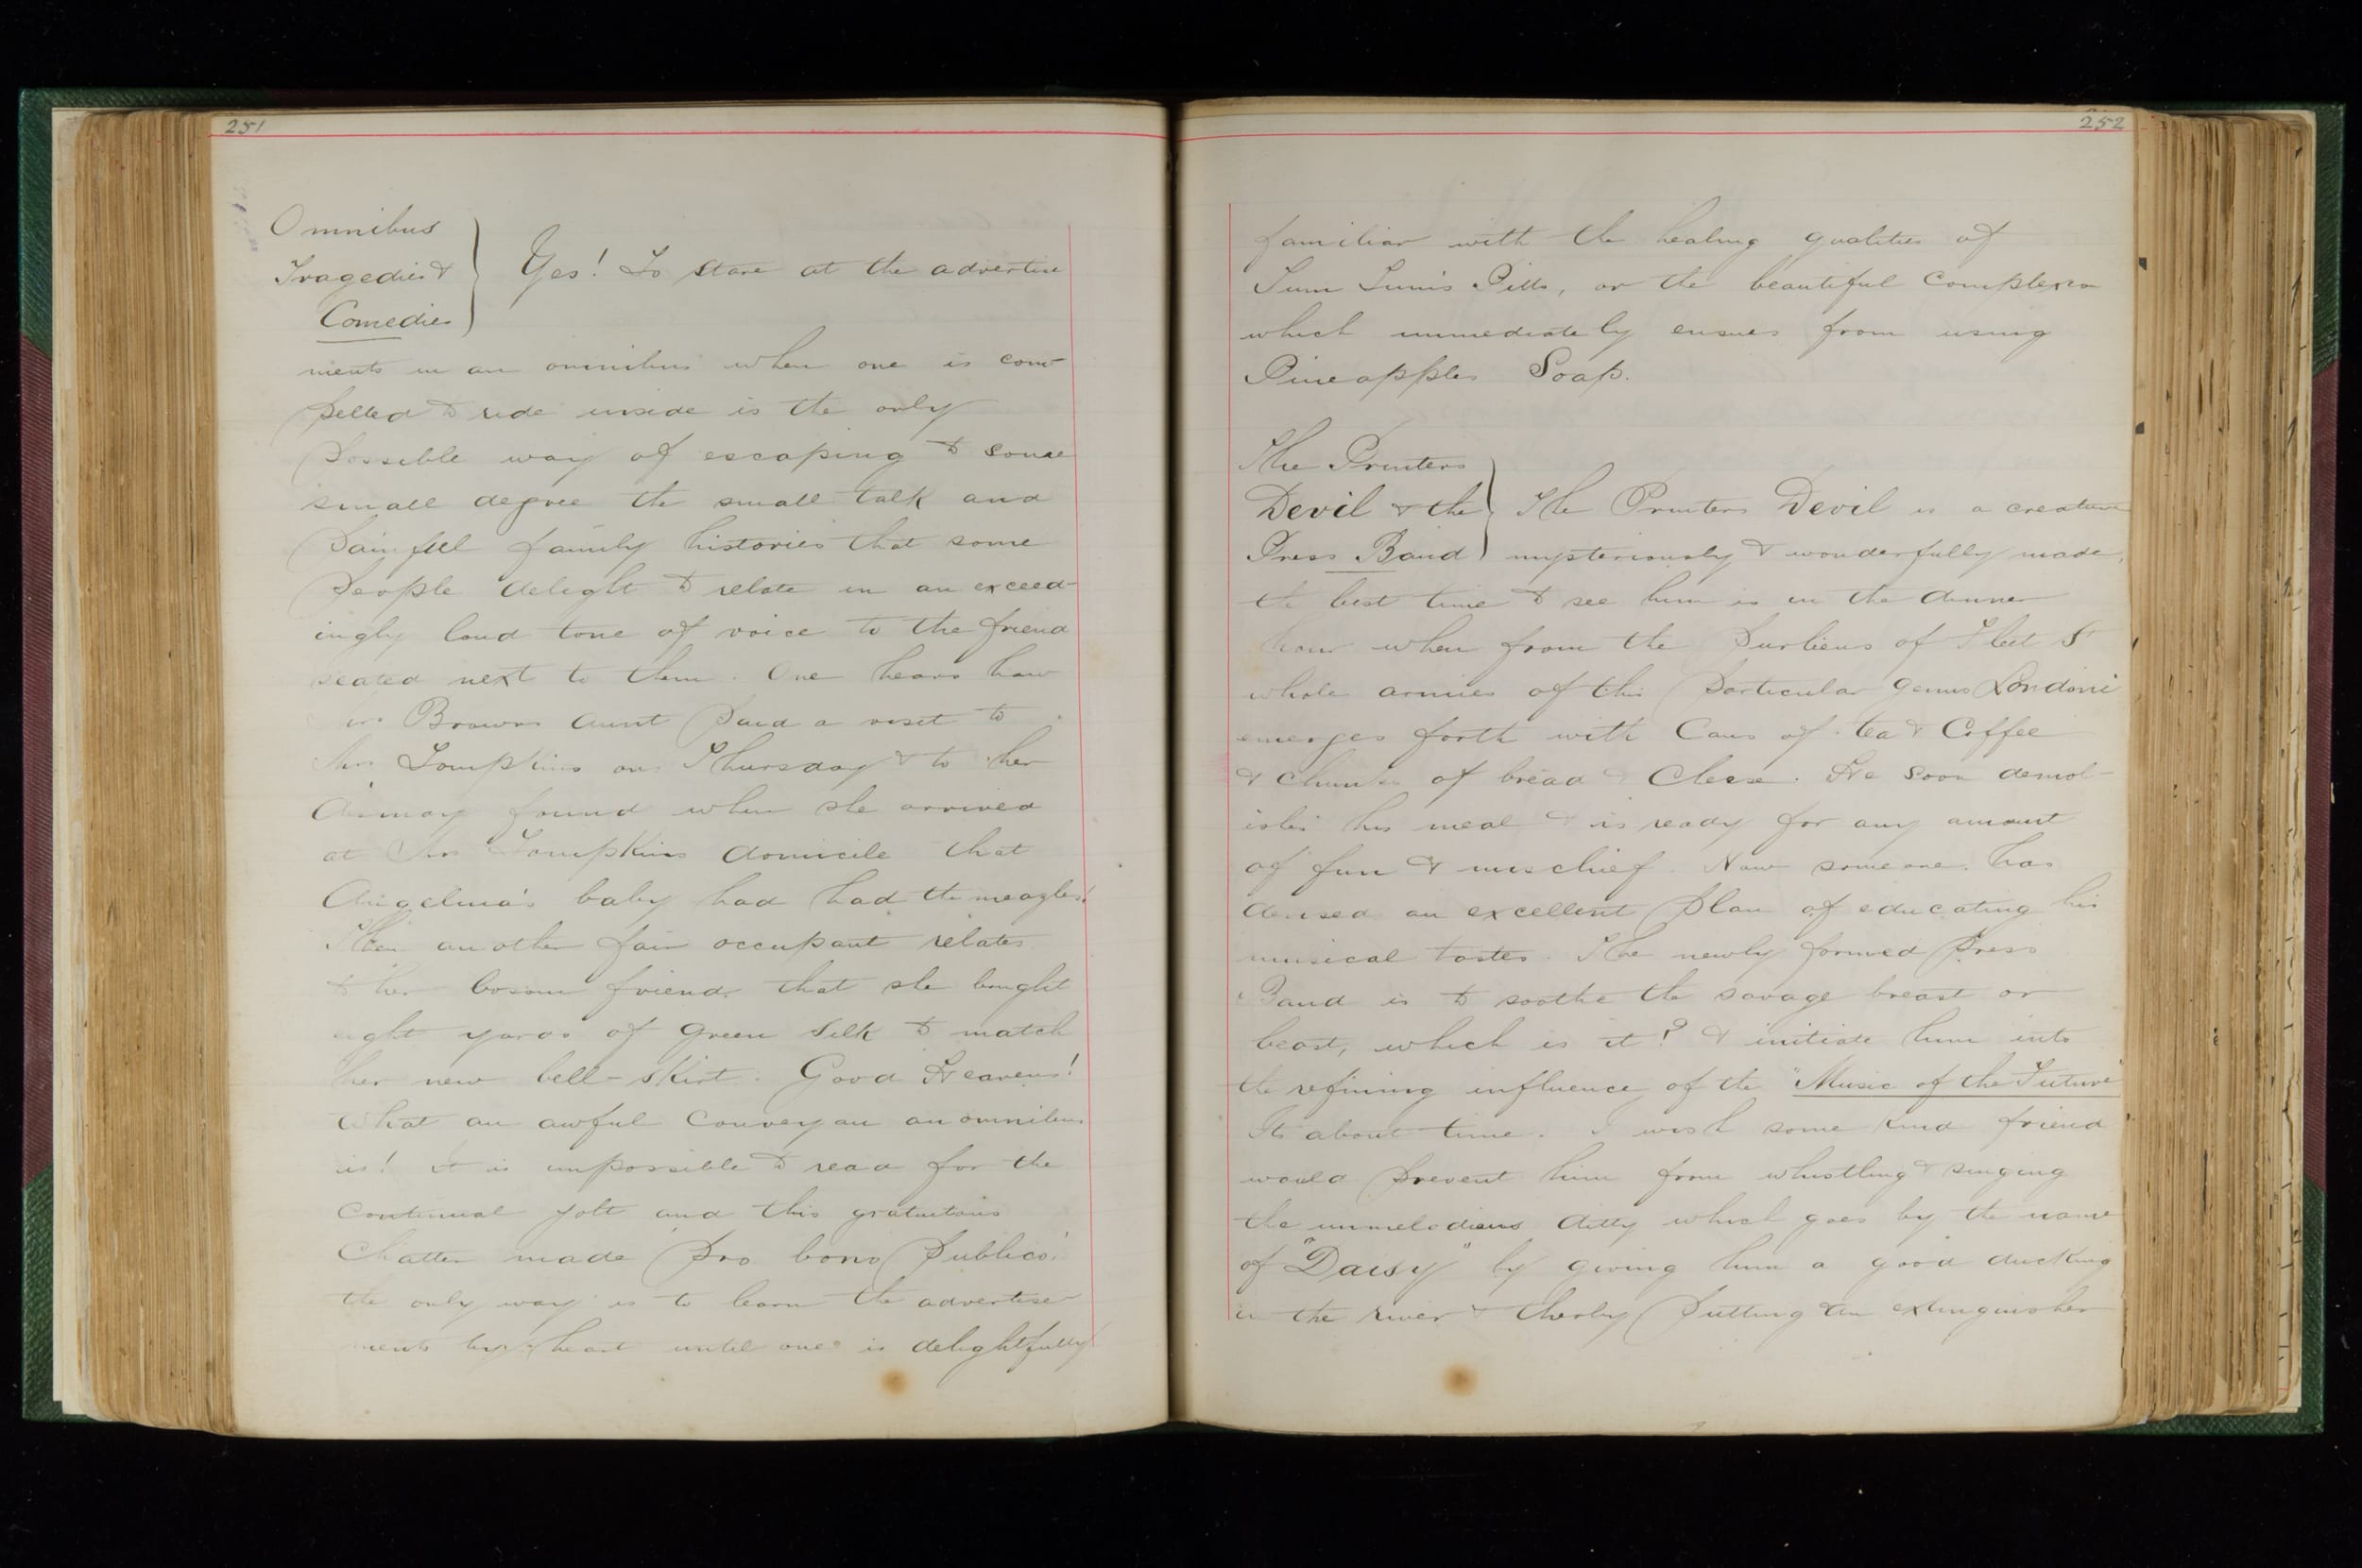 251
Omnibus
Tragedies &
Comedies
Yes! To stare at the advertise
ments in an omnibus when one is com-
pelled to ride inside is the only
possible way of escaping to some
small degree the small talk and
painful family histories that some
people delight to relate in an exceed-
ingly loud tone of voice to the friend
seated next to them. One hears how
Browns aunt paid a visit to
Mrs Tompkins on Thursday & to her
dismay found when she arrived
at Mrs Tompkins domicile that
Angelina's baby had had the meazles!
Then another fair occupant relates
to her bosom friend that she bought
eight yards of green silk to match
her new bell-skirt. Good Heavens!
What an awful conveyan an omnibus
is! it is impossible to read for the
continual jolt and this gratuitous
chatter made pro bono publico.
the only way is to learn the advertise
ments by heart until one is delightfully
252
familiar with the healing qualities of
Tum Tum's Pills, or the beautiful complexion
which immediately ensues from using
Pineapples Soap.
The Printers
Devil & the
Press Band
The Printers Devil is a creature
mysteriously & wonderfully made,
the best time to see him is in the dinner
hour when from the purlieus of Fleet St
whole armies of this particular genus Londoni
emerges forth with cans of tea & coffee
& chunks of bread & cheese. He soon demol-
ishes his meal & is ready for any amount
of fun & mischief. Now someone has
devised an excellent plan of educating his
musical tastes. The newly formed Press
Band is to soothe the savage breast or
beast, which is it? & initiate him into
the refining influence of the "Music of the Future"
Its about time. I wish some kind friend
would prevent him from whistling & singing
the unmelodious ditty which goes by the name
of "Daisy" by giving him a good ducking
in the river & therby putting an extinguisher